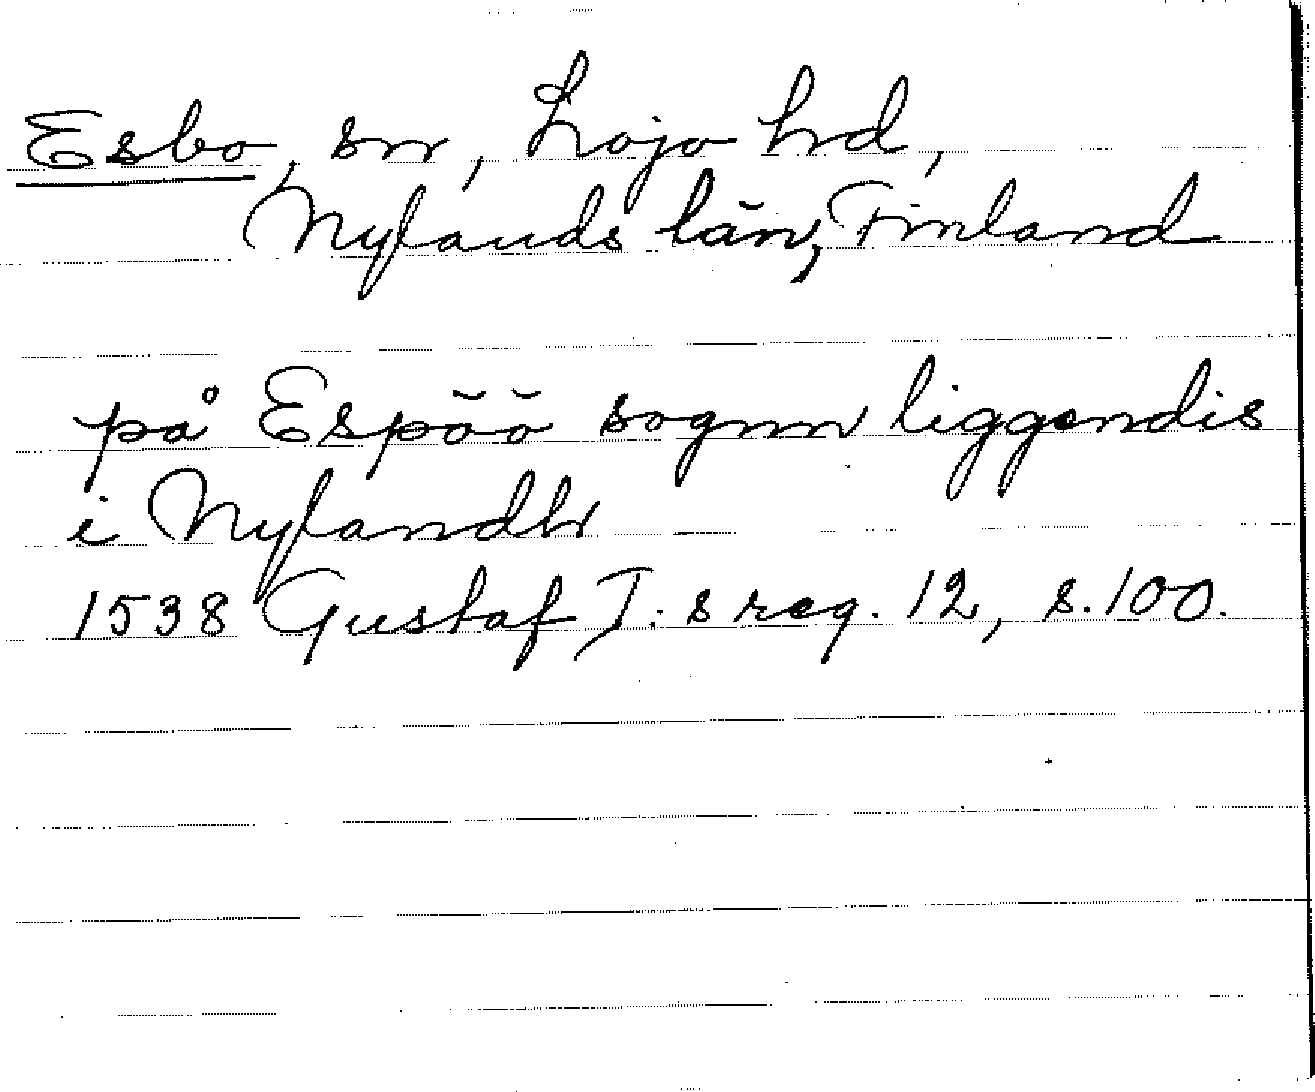 Esbo, sn, Lojo hd,
Nylands län, Finland
på Espöö sognn liggendis
i Nylandh
1538 Gustaf I:s reg. 12, s. 100.